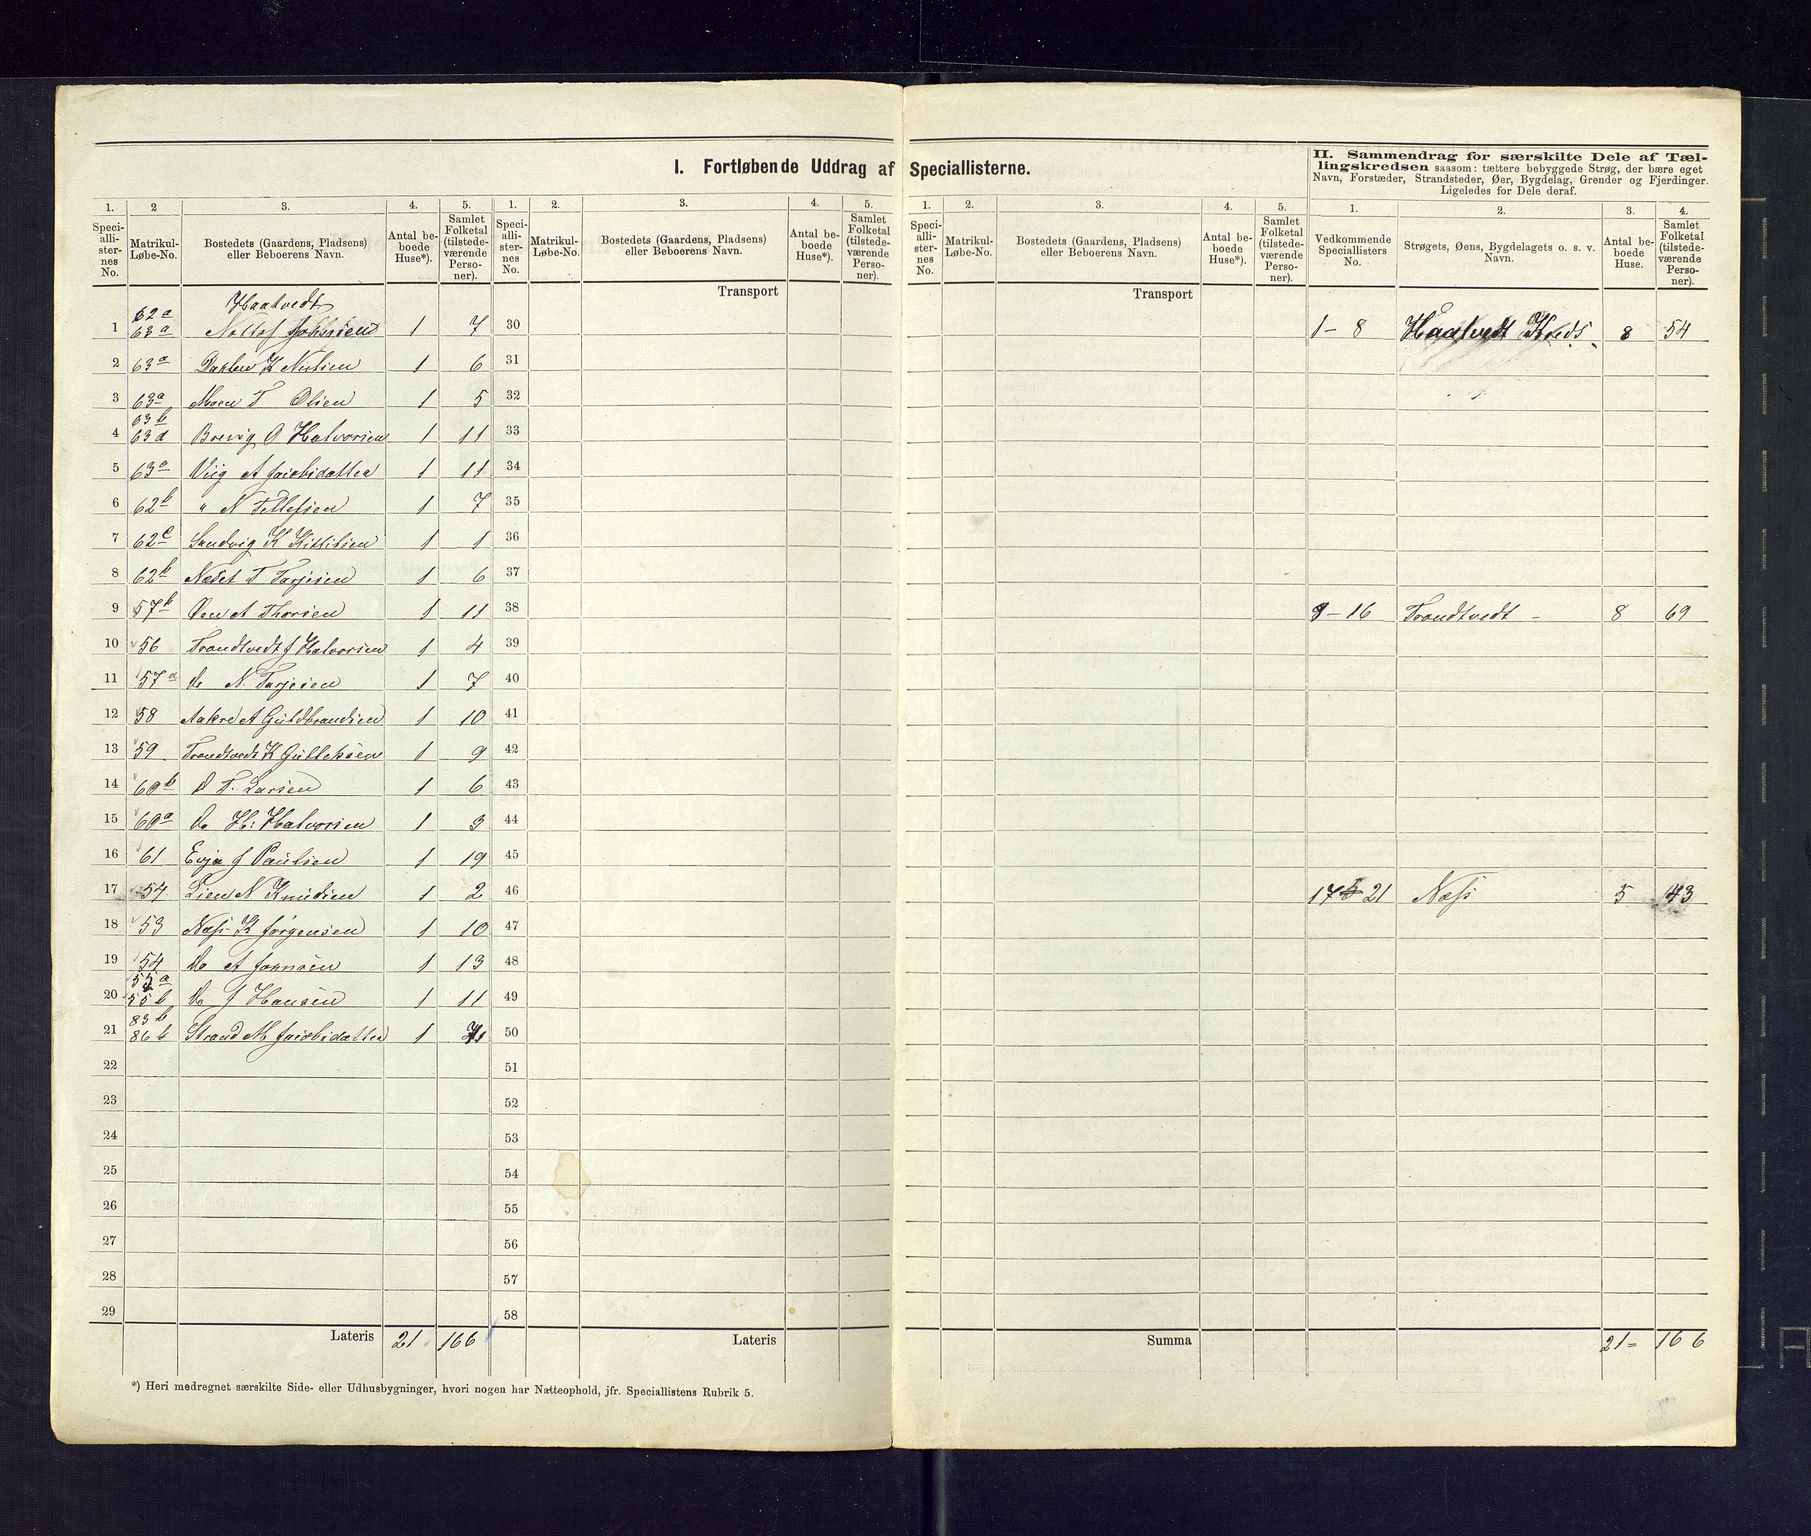 I. Fortløbende Uddrag af Speciallisterne.
II. Sammendrag for særskilte Dele af Tæl-
lingskredsen saasom: tættere bebyggede Strøg, der bære eget
Navn, Forstæder, Strandsteder, Øer, Bygdelag, Grender og Fjerdinger.
Ligeledes for Dele deraf.
1. 2 3. 4. 5. 1. 2. 3. 4. 5. 1. 2. 3. 4. 5. 1. 2. 3. 4.
Speciallisternes No. Matrikul-Løbe-No. Bostedets (Gaardens, Pladsens) eller Beboerens Navn. Antal beboede Huse*). Samlet Folketal (tilstedeværende Personer).
Speciallisternes No. Matrikul-Løbe-No. Bostedets (Gaardens, Pladsens) eller Beboerens Navn. Antal beboede Huse*). Samlet Folketal (tilstedeværende Personer).
Speciallisternes No. Matrikul-Løbe-No. Bostedets (Gaardens, Pladsens) eller Beboerens Navn. Antal beboede Huse*). Samlet Folketal (tilstedeværende Personer).
Vedkommende Speciallisters No. Strøgets, Øens, Bygdelagets o. s. v. Navn. Antal beboede Huse. Samlet Folketal (tilstedeværende Personer).
Transport Transport
62a Haatvedt
1 63a 1 7 30 1-8 Haatvedt Kreds 8 54
2 63a K 1 6 31
3 63a Moen T Olsen 1 5 32
63b
4 63d Brevig O Halvorsen 1 11 33
5 63a Viig A Jacobsdatter 1 11 34
6 62b " N Tellefsen 1 7 35
7 62c Sandvig K Kittilsen 1 1 36
8 62b Næset T Tarjesen 1 6 37
9 57b Øen A Thorsen 1 11 38 9-16 Trondtvedt - 8 69
10 56 Trondtvedt J Halvorsen 1 4 39
11 57a Do N. Tarjesen 1 7 40
12 58 Aakre A Guldbrandsen 1 10 41
13 59 Trondtvedt K Gulleksen 1 9 42
14 60b D T. Larsen 1 6 43
15 60a Do H: Halvorsen 1 3 44
16 61 Evja J Paulsen 1 19 45
17 54 Lien N Knudsen 1 2 46 17 21 Næss 5 43
18 53 Næss K Jørgensen 1 10 47
19 54 Do A Johnsen 1 13 48
55a
20 55b Do J Hansen 1 11 49
83b
21 86b Strand M Jacobsdatter 1 50
22 51
23 52
24 53
25 54
26 55
27 56
28 57
29 58
Lateris 21 166 Lateris Summa 21 = 166
*) Heri medregnet særskilte Side- eller Udhusbygninger, hvori nogen har Natteophold, jfr. Speciallistens Rubrik 5.